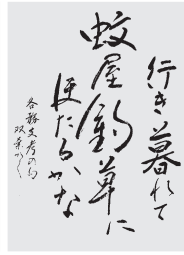 行き暮れて
蚊屋釣草に
ほたるかな
各務支考の句